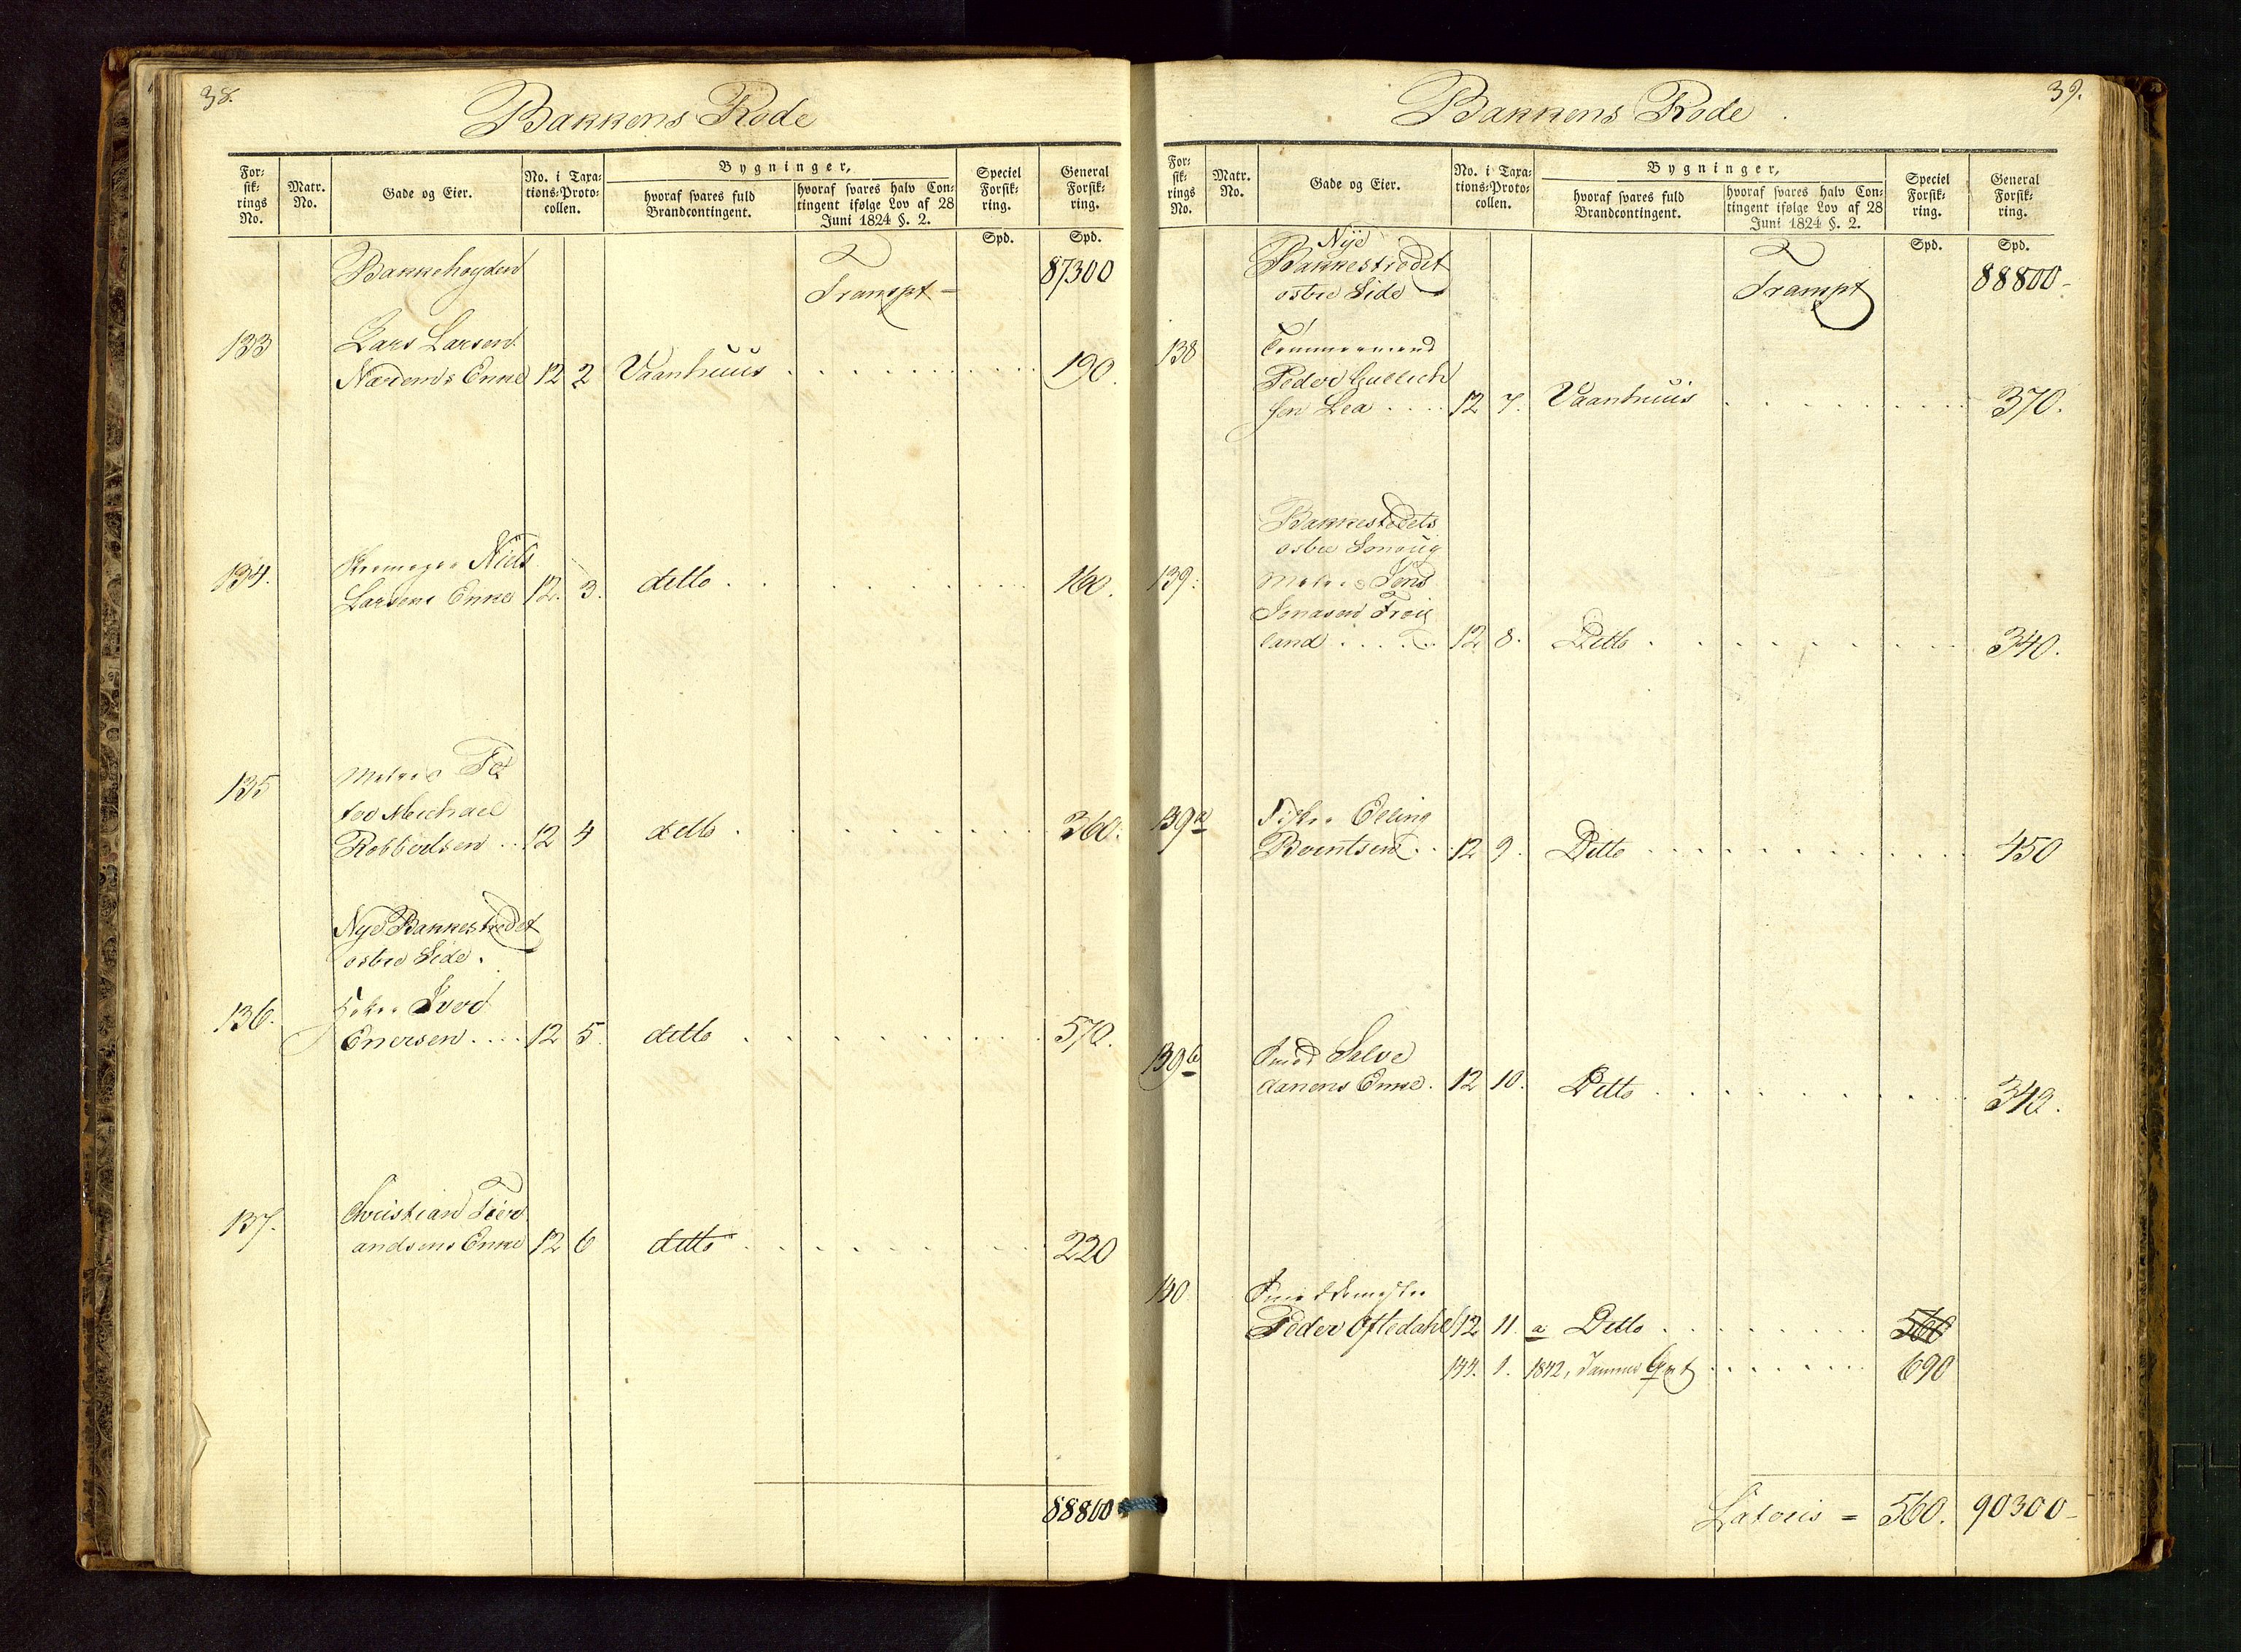 38.
Bakkens Rode
For-
sik-
rings
No.
Matr.
No.
Gade og Eier.
No. i Taxa-
tions-Proto-
collen.
Bygninger,
hvoraf svares fuld
Brandcontingent.
hvoraf svares halv Con-
tingent ifølge Lov af 28
Juni 1824 §. 2.
Speciel
Forsik-
ring.
General
Forsik-
ring.
Spd.
Spd.
Bakkehøyden
Transpt =
87300
133
Lars Larsen
Nærems Enke 12 2 Vaanhuus 190.
134.
Niels
Larsens Enke 12. 3. ditto 160.
135
Pe
ter Michael
Robbertsen 12 4 ditto 360.
Nye Bakkestrædet
østre Side.
136.
Iver
Enersen 12 5. ditto 570.
137.
Christian Tier
andsens Enke 12 6 ditto 220
88800
39.
Bakkens Rode
For-
sik-
rings
No.
Matr.
No.
Gade og Eier.
No. i Taxa-
tions-Proto-
collen.
Bygninger,
hvoraf svares fuld
Brandcontingent.
hvoraf svares halv Con-
tingent ifølge Lov af 28
Juni 1824 §. 2.
Speciel
Forsik-
ring.
General
Forsik-
ring.
Spd.
Spd.
Nye
Bakkestrædet
østre Side
Transpt
88800-
138
Tømmermand
Peder Gullich
sen Lea 12 7. Vaanhuus 370.
Bakkestrædets
østre Smoug
139.
Jens
Jonasen Frøi
land 12 8. Ditto 340.
139a
Fisker Elling
Berntsen 12 9. Ditto 450
139b
Smed Salve
danens Enke. 12 10. Ditto 340.
140
Peder Oftedahl 12 11. a Ditto 560
144. 1. 1842, Sammes Gmt 690
Lateris = 560. 90300-